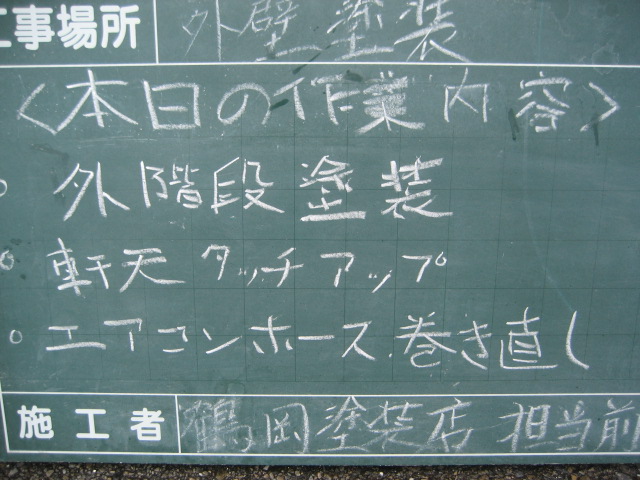 工事場所 外壁塗装
<本日の作業内容>
○ 外階段塗装
○ 軒天タッチアップ
○ エアコンホース巻き直し
施工者 鶴岡塗装店 担当前